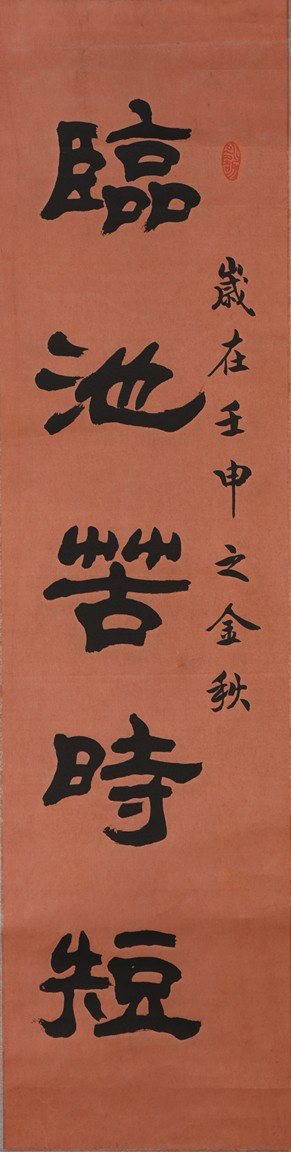 歲在壬申之金秋
臨池苦時短